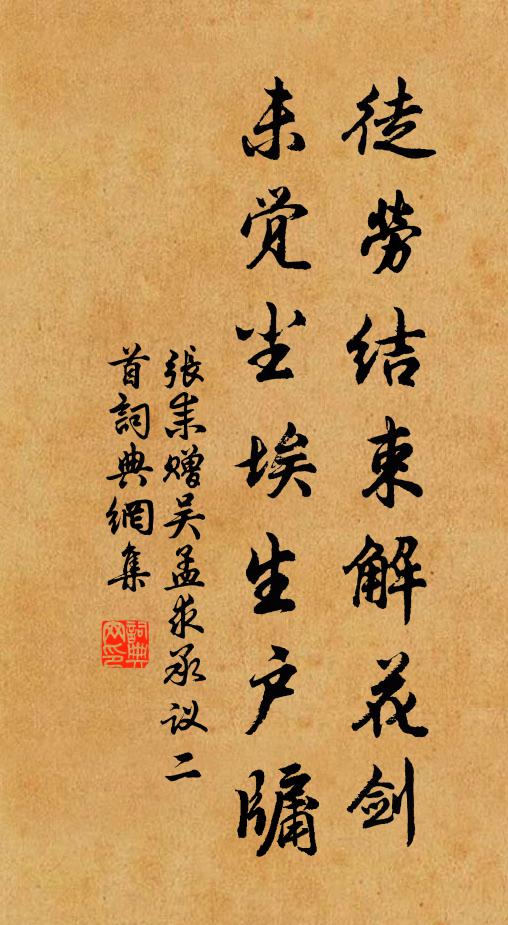 徒勞结束解花剑
未觉尘埃生户牖
張耒赠吴孟求承议二
首詞典網集
詞典網印